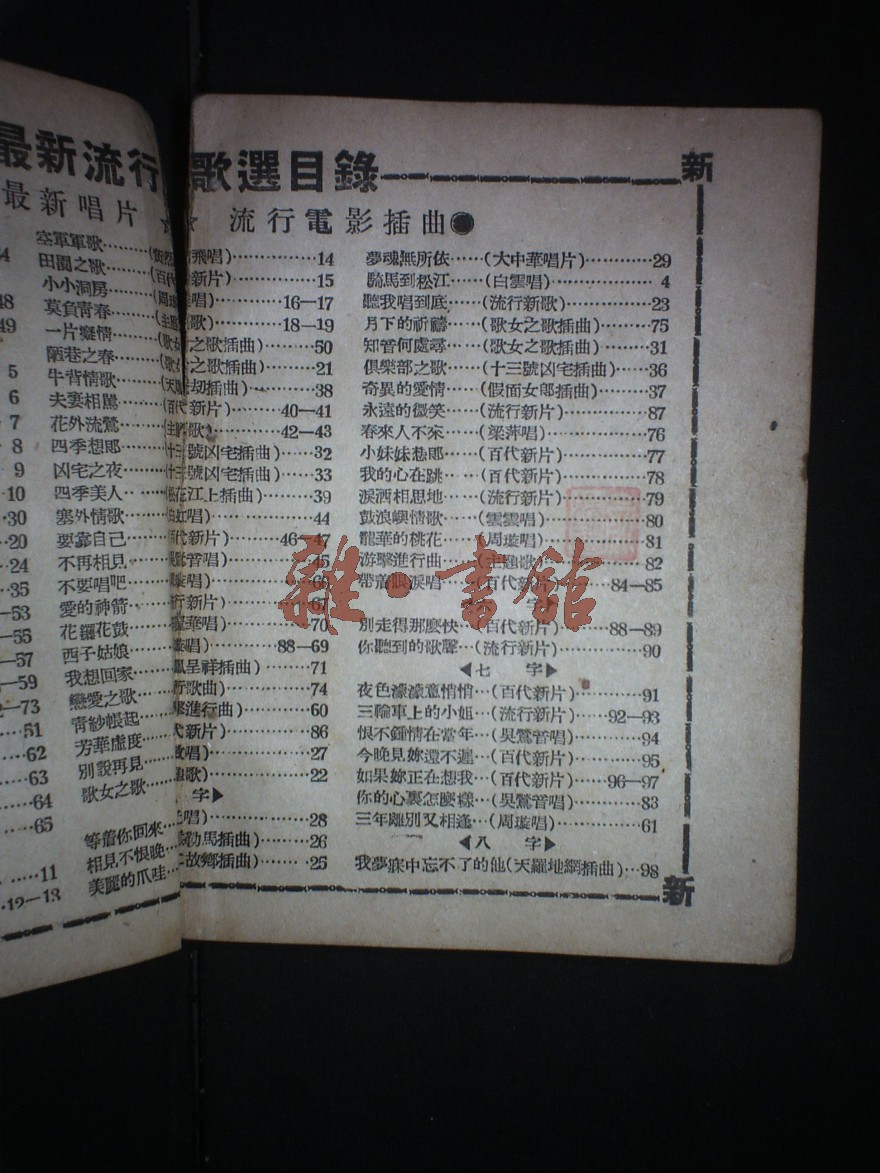 最新流行歌選目錄
新
最新唱片 ☆ 流行電影插曲●
空軍軍歌 14
田園之歌 (百代新片) 15
小小洞房 (周璇唱) 16—17
莫負青春 (主題歌) 18—19
一片癡情 (歌女之歌插曲) 50
陋巷之春 (歌女之歌插曲) 21
牛背情歌 38
夫妻相罵 (百代新片) 40—41
花外流鶯 (主題歌) 42—43
四季想郎 (十三號凶宅插曲) 32
凶宅之夜 (十三號凶宅插曲) 33
四季美人 (松花江上插曲) 39
塞外情歌 (白虹唱) 44
要靠自己 (百代新片) 46—47
不再相見 (吳鶯音唱) 45
不要唱吧
愛的神箭 (流行新片) 67
花鑼花鼓 70
西子姑娘 88—69
我想回家 (鳳呈祥插曲) 71
戀愛之歌 (流行歌曲) 74
青紗帳起 (游擊進行曲) 60
芳華虛度 (百代新片) 86
別說再見 27
歌女之歌 (主題歌) 22
字▶
等着你回來 28
相見不恨晚 26
美麗的爪哇 25
44
48
49
5
6
7
8
9
10
30
20
24
35
53
55
57
59
73
51
62
63
64
65
11
12—13
夢魂無所依……(大中華唱片)……29
騎馬到松江……(白雲唱)……4
聽我唱到底……(流行新歌)……23
月下的祈禱……(歌女之歌插曲)……75
知音何處尋……(歌女之歌插曲)……31
俱樂部之歌……(十三號凶宅插曲)……36
奇異的愛情……(假面女郎插曲)……37
永遠的微笑……(流行新片)……87
春來人不來……(梁萍唱)……76
小妹妹想郎……(百代新片)……77
我的心在跳……(百代新片)……78
淚洒相思地……(流行新片)……79
鼓浪嶼情歌……(雲雲唱)……80
龍華的桃花……(周璇唱)……81
游擊進行曲……(主題歌)……82
帶着眼淚唱……(百代新片)……84—85
字▶
別走得那麼快…(百代新片)……88—89
你聽到的歌聲…(流行新片)……90
◀七 字▶
夜色濛濛意悄悄…(百代新片)……91
三輪車上的小姐…(流行新片)……92—93
恨不鍾情在當年…(吳鶯音唱)……94
今晚見妳還不遲…(百代新片)……95
如果妳正在想我…(百代新片)……96—97
你的心裏怎麼樣…(吳鶯音唱)……83
三年離別又相逢…(周璇唱)……61
◀八 字▶
我夢寐中忘不了的他(天羅地網插曲)…98
新
雜·書館